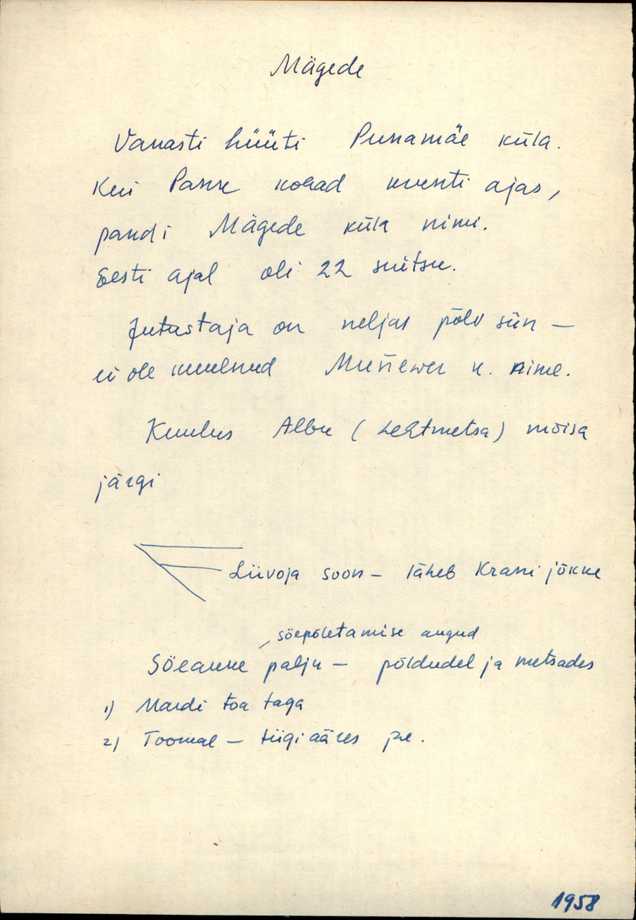 Mägede
Vanasti hüüti Punamäe küla.
Kui Panne kohad mensti ajas,
pandi Mägede küla nimi.
Eesti ajal oli 22 suitsu.
Jutustaja on neljas põlv siin –
ei ole kuulnud k. nime.
Kuulus Albu (Lehtmetsa) mõisa
järgi
Liivoja soon – läheb Krassi jõkke
sõepõletamise augud
Sõeauke palju – põldudel ja metsades
1) Mardi toa taga
2) Toomal – tiigi ääres jne.
1958